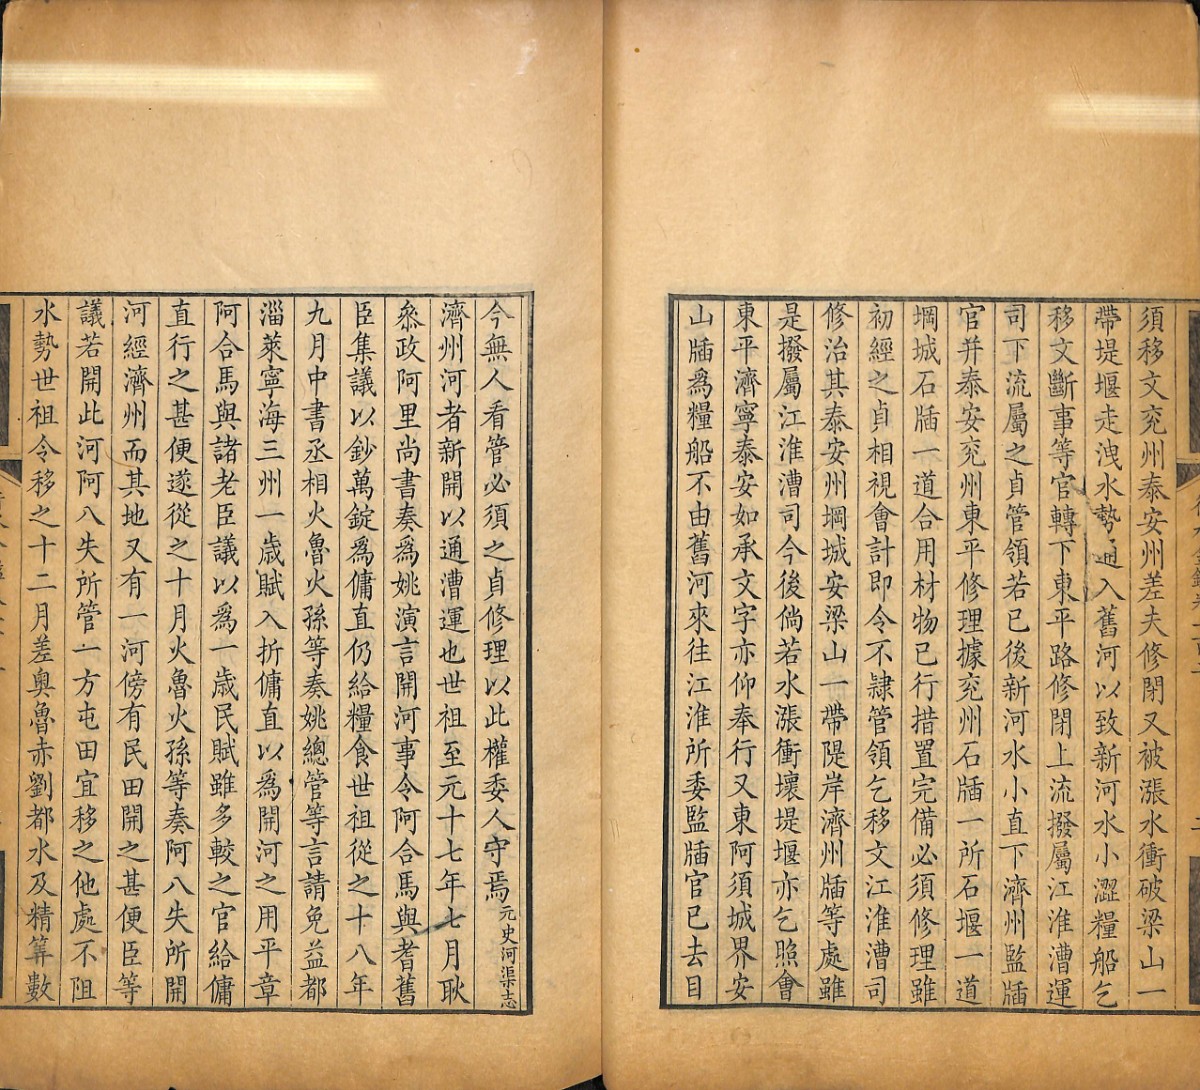 須移文兖州泰安州差夫修閉又被漲水衝破梁山一
帶堤堰走洩水勢通入舊河以致新河水小澀糧船乞
移文斷事等官轉下東平路修閉上流撥屬江淮漕運
司下流屬之貞管領若已後新河水小直下濟州監牐
官并泰安兖州東平修理據兖州石牐一所石堰一道
堈城石牐一道合用材物已行措置完備必須修理雖
初經之貞相視會計即令不隷管領乞移文江淮漕司
修治其泰安州堈城安梁山一帶隄岸濟州牐等處雖
是撥屬江淮漕司今後倘若水漲衝壞堤堰亦乞照會
東平濟寧泰安如承文字亦仰奉行又東阿須城界安
山牐爲糧船不由舊河來往江淮所委監牐官已去目
今無人看管必須之貞修理以此權委人守焉元史河渠志
濟州河者新開以通漕運也世祖至元十七年七月耿
叅政阿里尚書奏爲姚演言開河事令阿合馬與耆舊
臣集議以鈔萬錠爲傭直仍給糧食世祖從之十八年
九月中書丞相火魯火孫等奏姚總管等言請免益都
淄萊寧海三州一歲賦入折傭直以爲開河之用平章
阿合馬與諸老臣議以爲一歲民賦雖多較之官給傭
直行之甚便遂從之十月火魯火孫等奏阿八失所開
河經濟州而其地又有一河傍有民田開之甚便臣等
議若開此河阿八失所管一方屯田宜移之他處不阻
水勢世祖令移之十二月差奥魯赤劉都水及精筭數